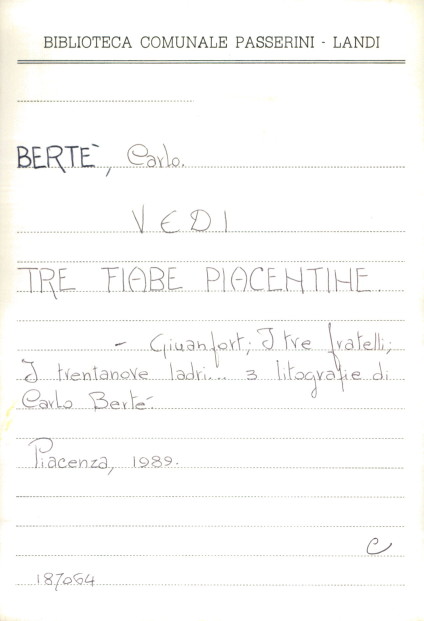 BIBLIOTECA COMUNALE PASSERINI - LANDI
BERTE`, Carlo.
VEDI
TRE FIABE PIACENTINE.
- Giuanfort; I tre fratelli;
I trentanove ladri... 3 litografie di
Carlo Berté.
Piacenza, 1989.
C
187064